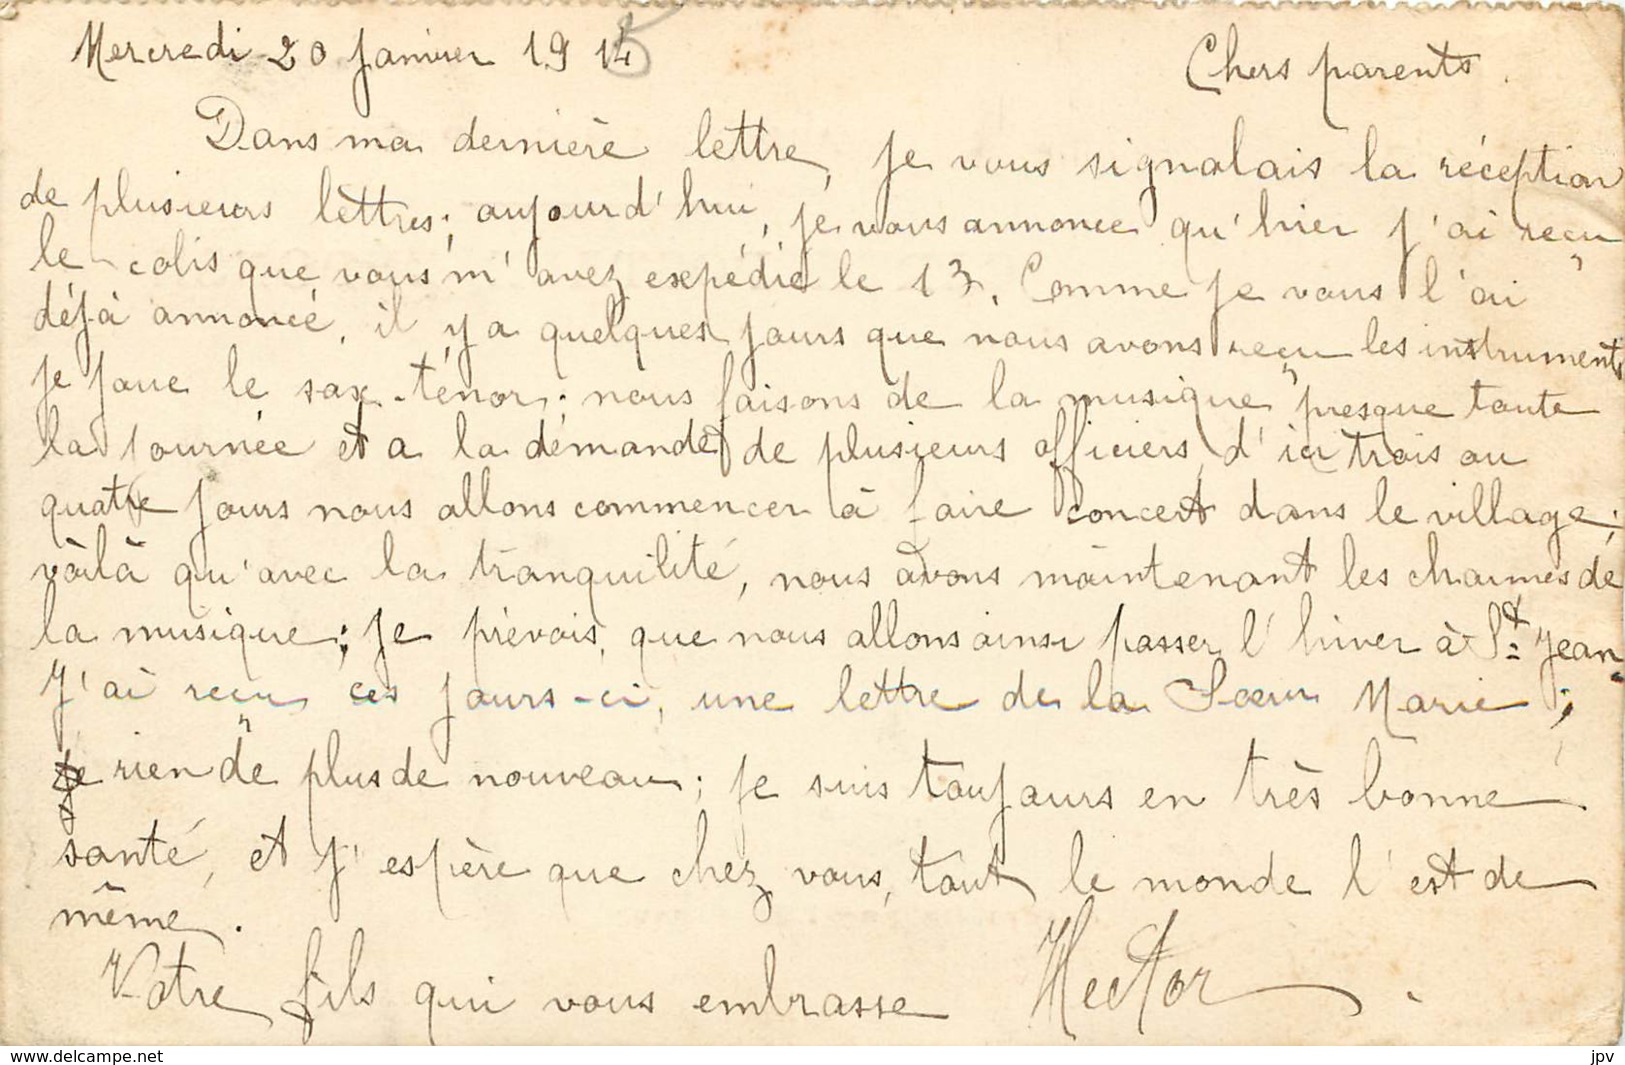 Mercredi 20 Janvier 1915 Chers parents.
Dans ma dernière lettre, je vous signalais la réception
de plusieurs lèttres; aujourd'hui, je vous annonce qu'hier j'ai reçu
le colis que vous m'avez expédié le 13. Comme je vous l'ai
déjà annoncé, il y a quelques jours que nous avons reçu les instruments
je joue le sax-ténor; nous faisons de la musique presque toute
la journée et a la demande de plusieurs officiers, d'ici trois ou
quatre jours nous allons commencer à faire concert dans le village;
voilà qu'avec la tranquilité, nous avons maintenant les charmes de
la musique; je prévois, que nous allons ainsi passer l'hiver à St Jean
J'ai reçu ces jours-ci, une lettre de la Soeur Marie;
rien de plus de nouveau; je suis toujours en très bonne
santé, et j'espère que chez vous, tout le monde l'est de
même.
Votre fils qui vous embrasse Hector.
www.delcampe.net
jpv